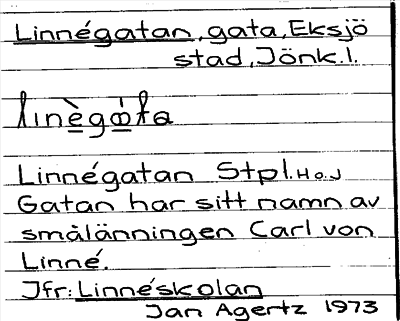 Linnégatan, gata, Eksjö
stad, Jönk.l.
linègáta
Linnégatan Stpl. HoJ
Gatan har sitt namn av
smålänningen Carl von
Linné.
Jfr: Linnéskolan
Jan Agertz 1973